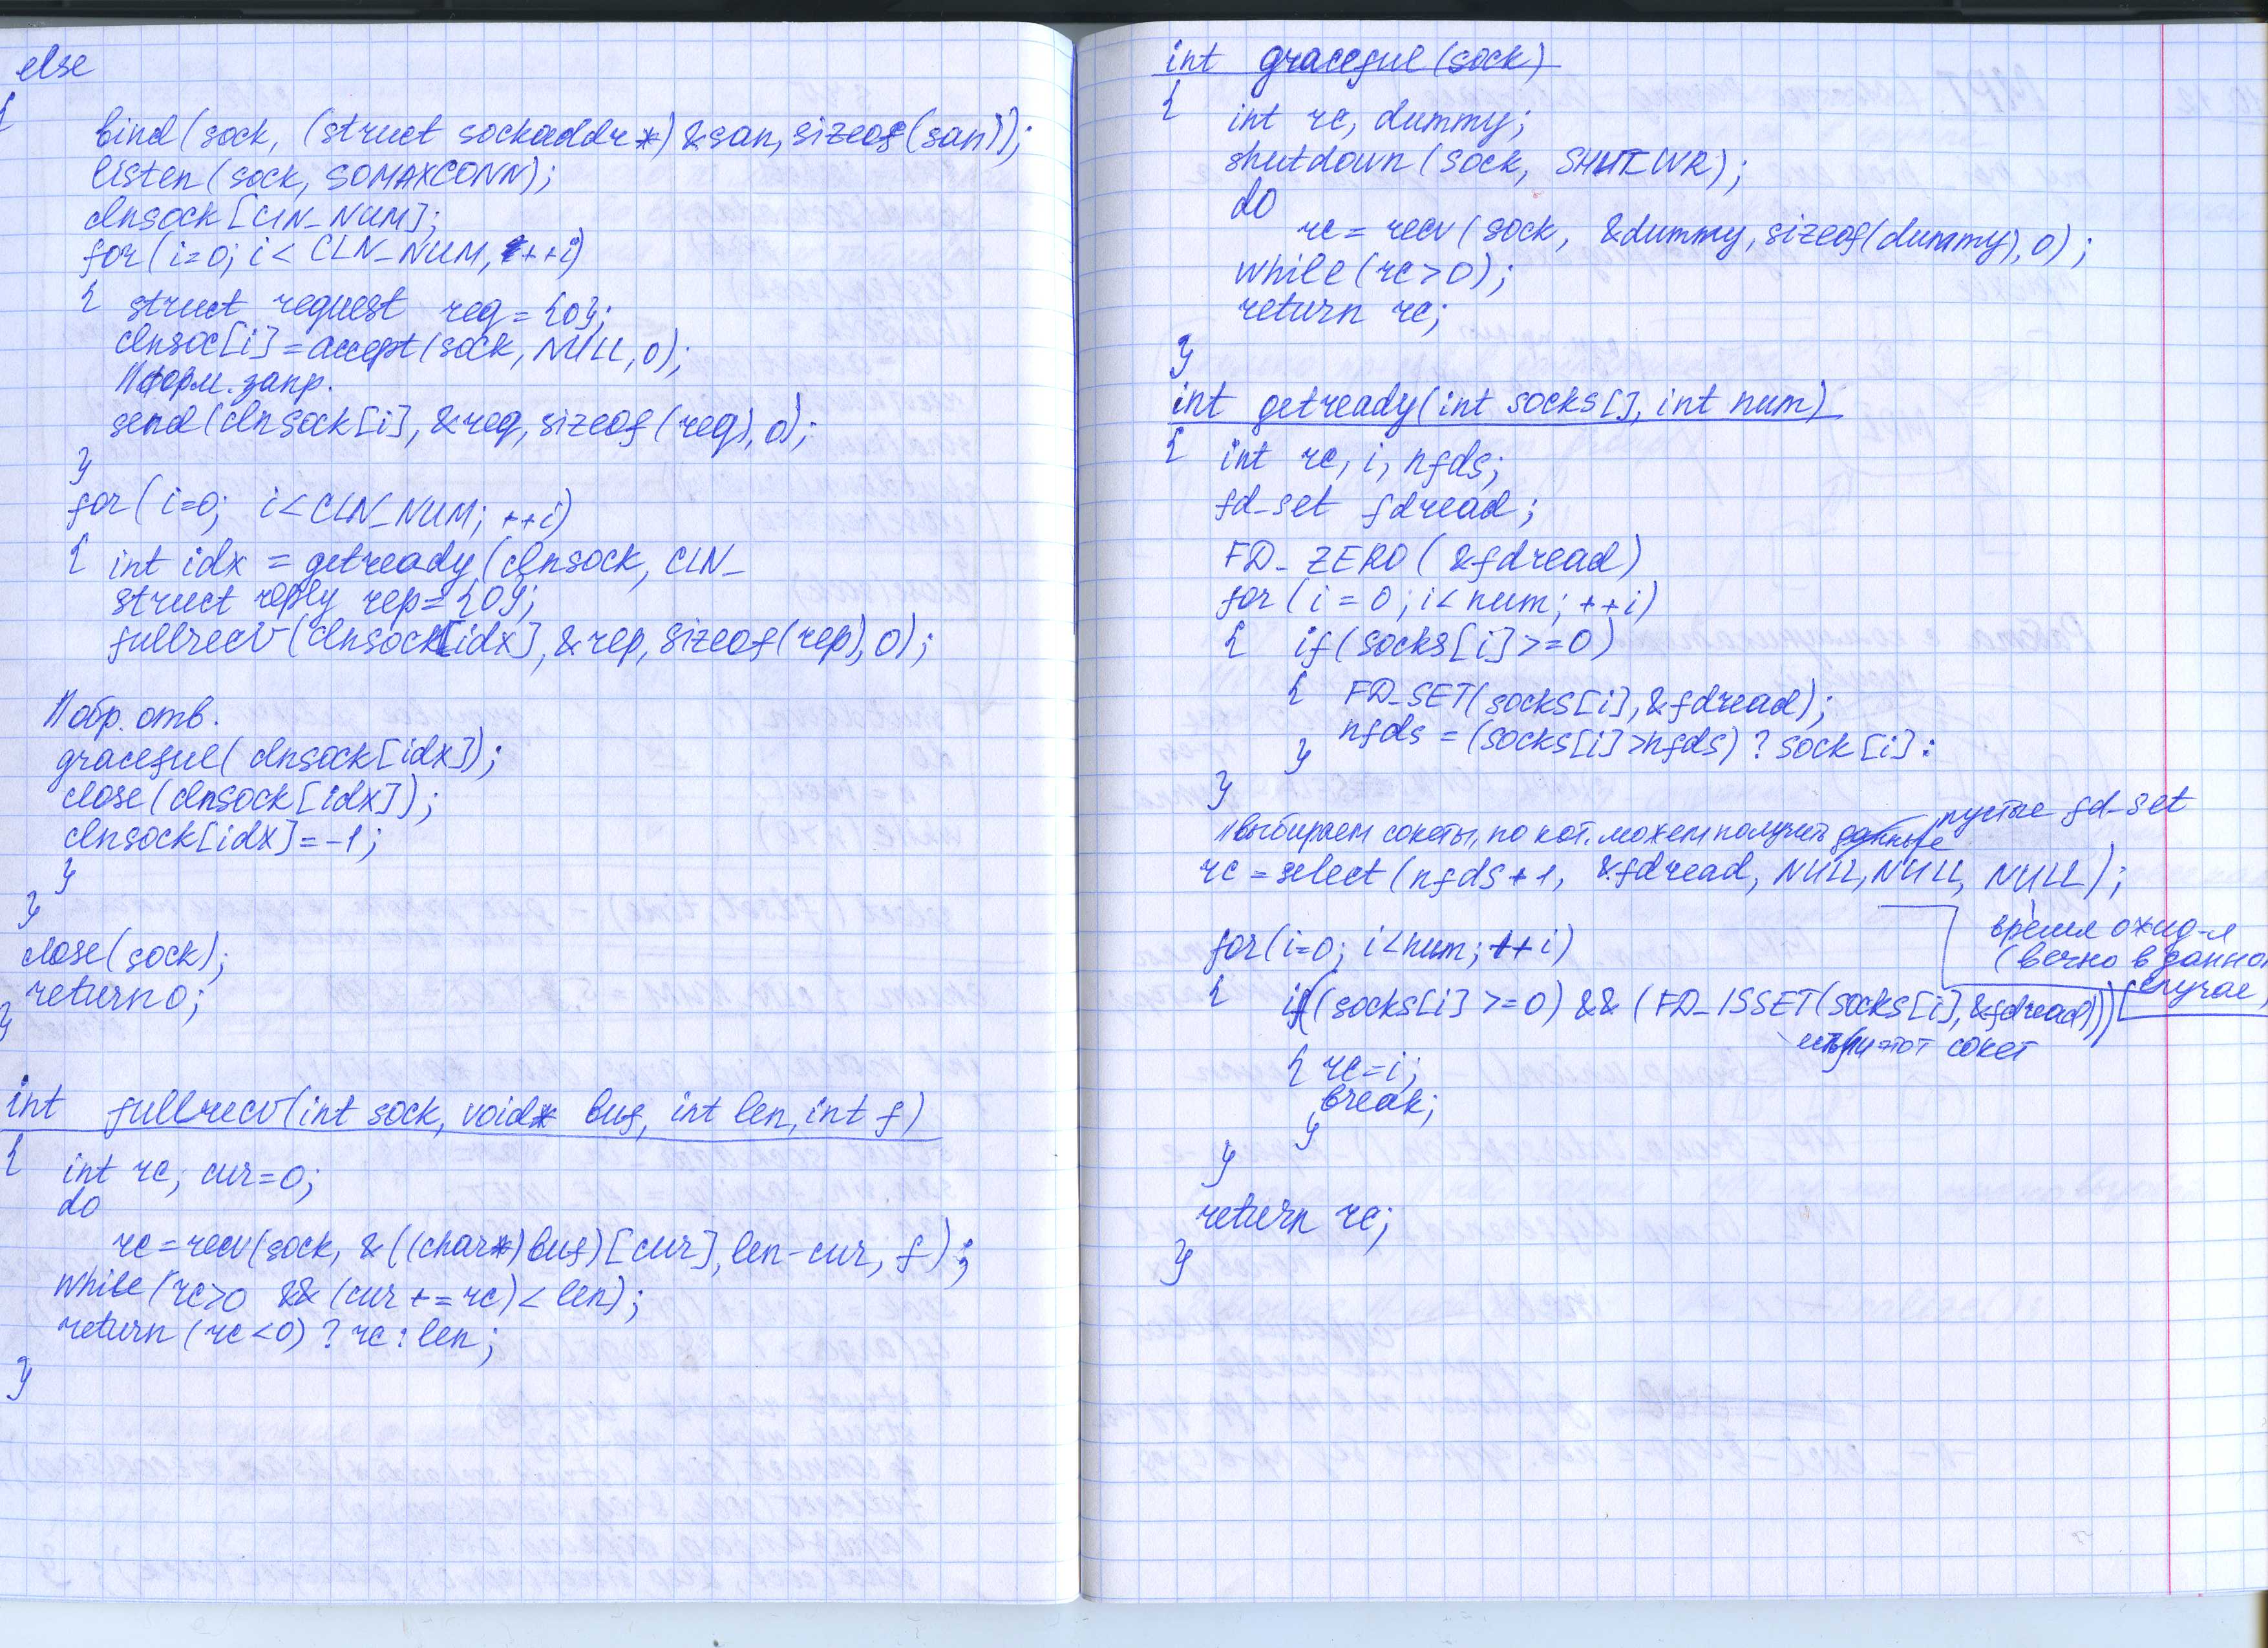 else
{
bind(sock, (struct sockaddr*)&san, sizeof(san));
listen(sock, SOMAXCONN);
clnsock[ClN_NUM];
for(i=0; i< CLN_NUM, ++i)
{ struct request req={0};
clnsoc[i]=accept(sock, NULL, 0);
//форм. запр.
send(clnsock[i], &req, sizeof(req), 0);
}
for(i=0; i<CLN_NUM; ++i)
{ int idx = getready(clnsock, CLN_
struct reply rep={0};
fullrecv(clnsock[idx], &rep, sizeof(rep), 0);
//обр. отв.
graceful(clnsock[idx]);
close(clnsock[idx]);
clnsock[idx]=-1;
}
}
close(sock);
return 0;
}
int fullrecv(int sock, void* buf, int len, int f)
{ int rc, cur=0;
do
rc=recv(sock, &((char*)buf)[cur], len-cur, f);
while(rc>0 && (cur+=rc)<len);
return (rc<0)?rc:len;
}
int graceful(sock)
{ int rc, dummy;
shutdown(sock, SHUT_WR);
do
rc=recv(sock, &dummy, sizeof(dummy), 0);
while(rc>0);
return rc;
}
int getready(int socks[], int num)
{ int rc, i, nfds;
fd_set fdread;
FD_ZERO(&fdread)
for(i=0; i<num; ++i)
{ if(socks[i]>=0)
{ FD_SET(socks[i], &fdread);
nfds=(socks[i]>nfds)?sock[i]:
}
}
//выбираем сокеты, по кот. можем получить данные пустые fd_set
rc=select(nfds+1, &fdread, NULL, NULL, NULL);
время ожид-я
(вечно в данном
случае)
for(i=0; i<num; ++i)
{ if((socks[i]>=0) && (FD_ISSET(socks[i], &fdread)))
этот сокет
{ rc=i;
break;
}
}
return rc;
}